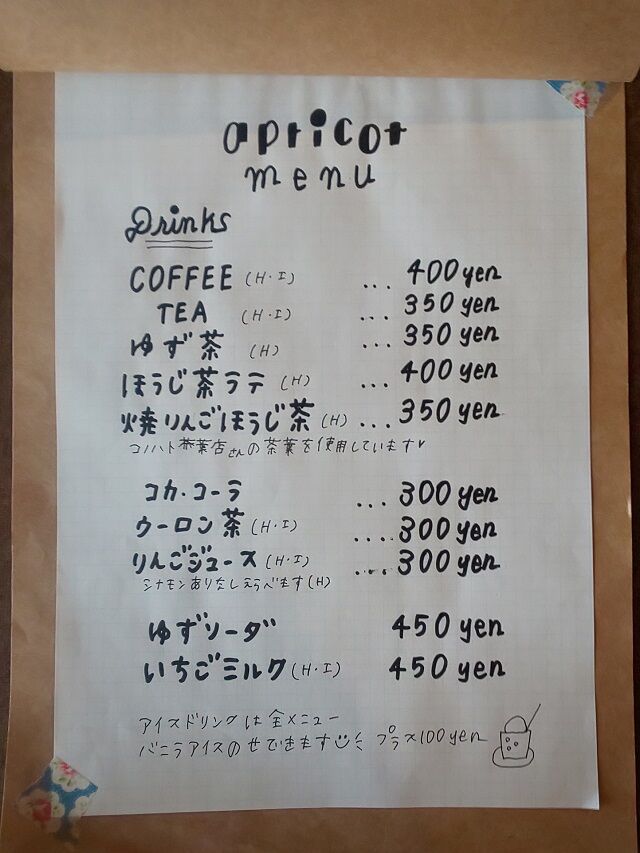 apricot
menu
Drinks
COFFEE (H・I) ... 400 yen
TEA (H・I) ... 350 yen
ゆず茶 (H) ... 350 yen
ほうじ茶ラテ (H) ... 400 yen
焼りんごほうじ茶 (H) ... 350 yen
コノハト茶葉店さんの茶葉を使用しています♥
コカ・コーラ ... 300 yen
ウーロン茶 (H・I) .... 300 yen
りんごジュース (H・I) .... 300 yen
シナモンありなしえらべます (H)
ゆずソーダ 450 yen
いちごミルク (H・I) 450 yen
アイスドリンクは全メニュー
バニラアイスのせできます プラス100yen